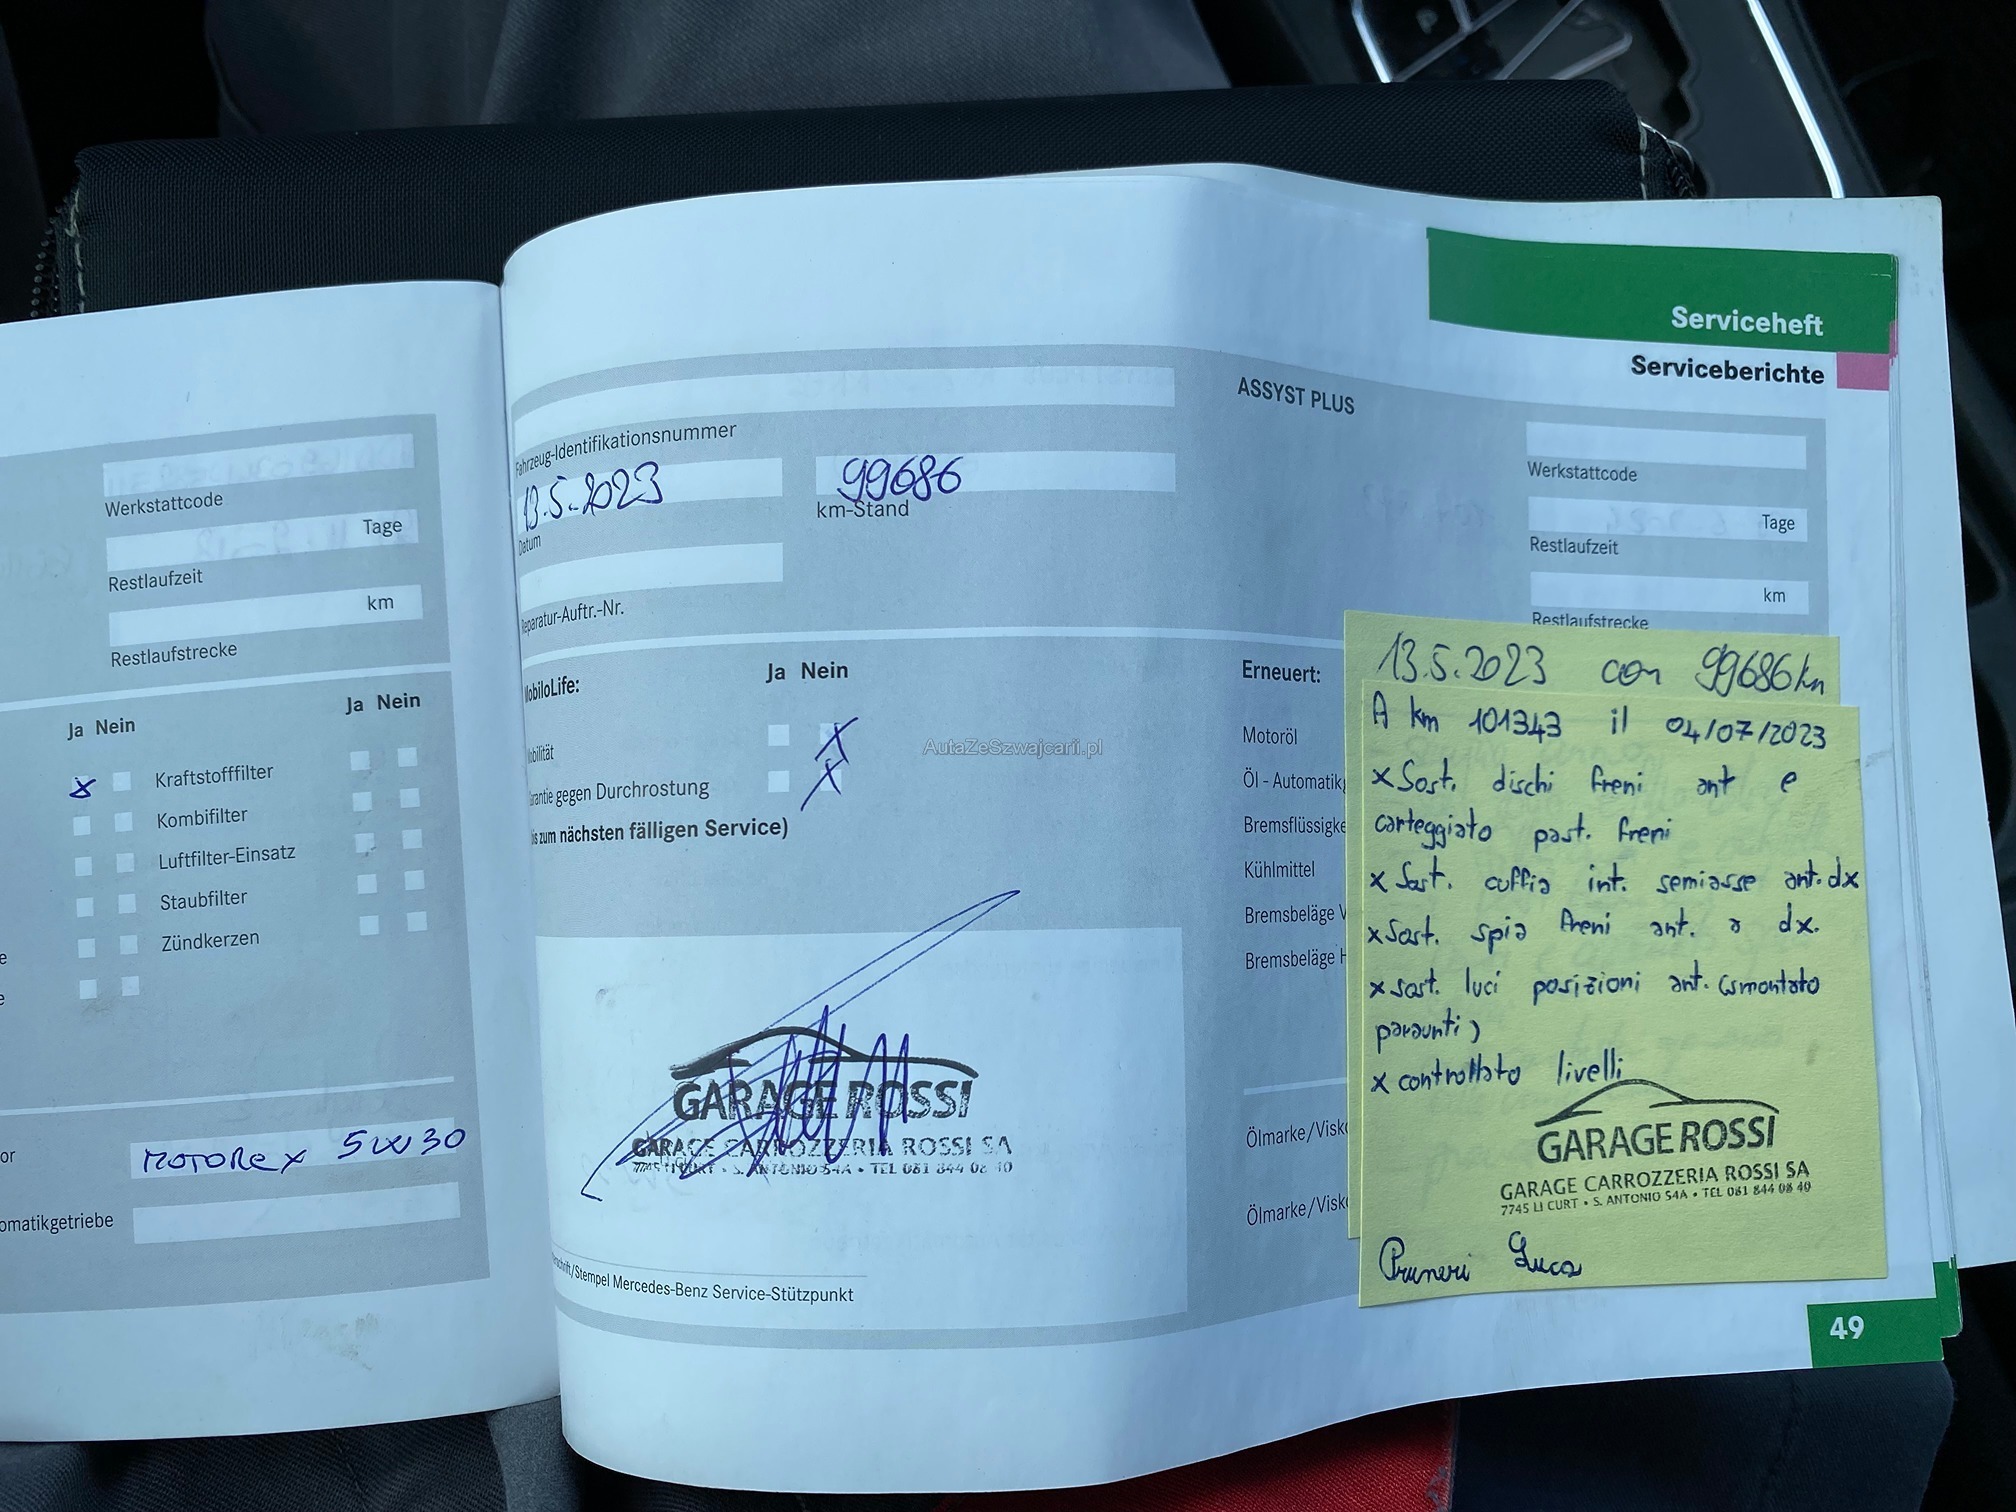 Werkstattcode
Tage
Restlaufzeit
km
Restlaufstrecke
Ja Nein
Ja Nein
Kraftstofffilter
Kombifilter
Luftfilter-Einsatz
Staubfilter
Zündkerzen
MOTOREX 5W30
omatikgetriebe
Serviceheft
Serviceberichte
ASSYST PLUS
Fahrzeug-Identifikationsnummer
13.5.2023
99686
Datum
km-Stand
Reparatur-Auftr.-Nr.
Werkstattcode
Tage
Restlaufzeit
km
Restlaufstrecke
MobiloLife:
Ja Nein
Mobilität
Garantie gegen Durchrostung
bis zum nächsten fälligen Service)
AutaZeSzwajcarii.pl
GARAGE ROSSI
GARAGE CARROZZERIA ROSSI SA
7745 LI CURT • S. ANTONIO 54A • TEL 081 844 08 40
/Stempel Mercedes-Benz Service-Stützpunkt
Erneuert:
Motoröl
Öl - Automatikg
Bremsflüssigke
Kühlmittel
Bremsbeläge V
Bremsbeläge H
Ölmarke/Visko
Ölmarke/Visko
13.5.2023 con 99686 km
A km 101343 il 04/07/2023
x Sost. dischi freni ant e
carteggiato past. freni
x Sost. cuffia int. semiasse ant. dx
x Sost. spia freni ant. a dx.
x sost. luci posizioni ant. (smontato
paraurti)
x controllato livelli
GARAGE ROSSI
GARAGE CARROZZERIA ROSSI SA
7745 LI CURT • S. ANTONIO 54A • TEL 081 844 08 40
Pruneri Luca
49